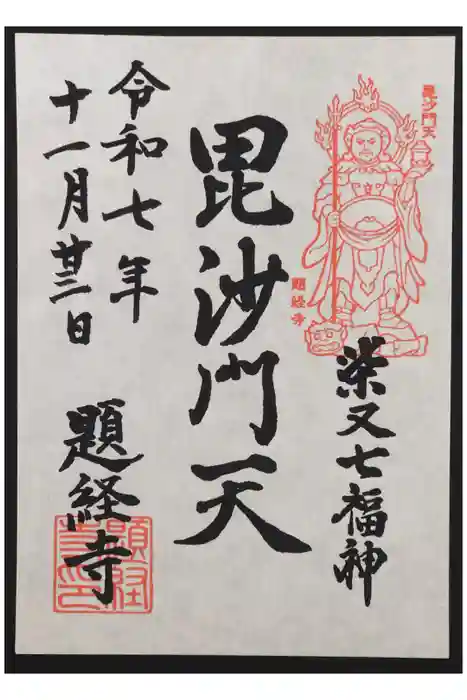 毘沙門天
題経寺
柴又七福神
毘沙門天
令和七年
十一月廿三日
題経寺
題経寺印